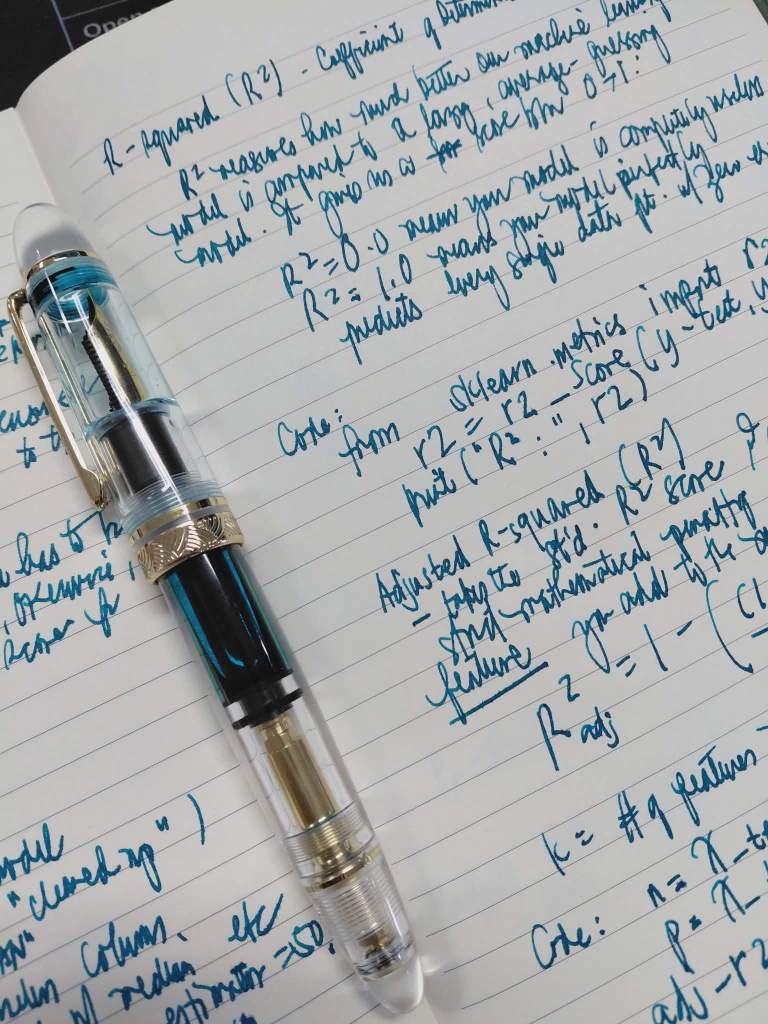 Open
R-squared (R²) - Coefficient of Determin
R² measures how much better our machine learning
model is compared to a lazy, average-guessing
model. It gives us a score b/w 0→1:
R² = 0.0 means your model is completely useless
R² = 1.0 means your model perfectly
predicts every single data pt. w/ zero er
Code:
from sklearn.metrics import r2
r2 = r2_score(y-test, y
print("R² :", r2)
Adjusted R-squared (R²)
- takes the std. R² score &
and mathematical penalty
feature you add to the
R²adj = 1 - ((1
k = # of features
Code: n = X_te
p = X_
adj-r2
to t
has to
, otherwise,
model
"cleaned up" )
column, etc
of median
estimator = 50.